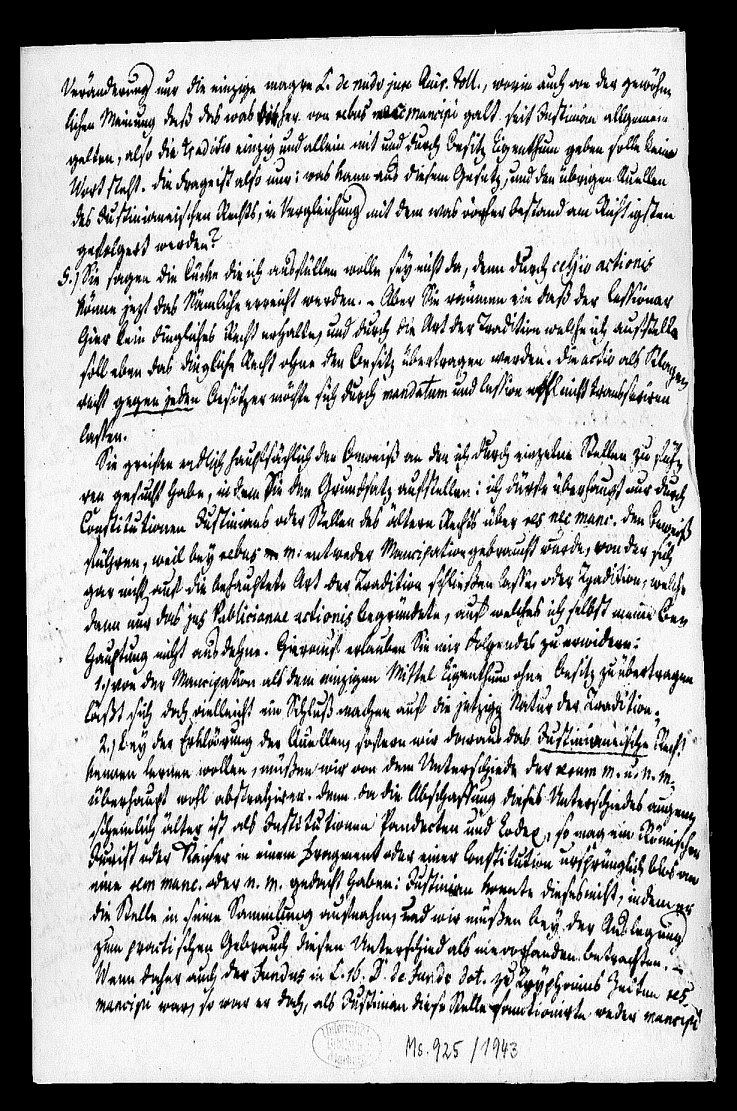 Veränderung nur die einzige magre L. de nudo jure Quir. toll., worin auch von der gewöhn
lichen Meinung daß das was bisher von rebus nec mancipi galt seit Justinian allgemein
gelten, also die Tradition einzig und allein mit und durch Besitz Eigenthum geben solle kein
Wort steht. Die Frage ist also nur: was kann aus diesem Gesetz, und den übrigen Quellen
des Justinianeischen Rechts, in Vergleichung mit dem was vorher bestand am Richtigsten
gefolgert werden?
5.) Sie sagen die Lücke die ich ausfüllen wolle sey nicht da, denn durch cessio actionis
könne jezt das Nämliche erreicht werden. – Aber Sie räumen ein daß der Cessionar
hier kein dingliches Recht erhalte, und durch die Art der Tradition welche ich aufstelle
soll eben das dingliche Recht ohne den Besitz übertragen werden. Die actio als Klagen
recht gegen jeden Besitzer möchte sich durch mandatum und Cession nicht transferiren
lassen.
Sie greifen endlich hauptsächlich den Beweiß an den ich durch einzelne Stellen zu füh
ren gesucht habe, indem Sie den Grundsatz aufstellen: ich dürfte überhaupt nur durch
Constitutionen Justinians oder Stellen des ältern Rechts über res nec manc. den Beweiß
führen, weil bey rebus m: entweder Mancipation gebraucht wurde, von der sich
gar nicht auf die behauptete Art der Tradition schließen lasse, oder Tradition, welche
dann nur das jus Publicianae actionis begründete, auf welches ich selbst meine Be
hauptung nicht ausdehne. Hierauf erlauben Sie mir Folgendes zu erwidern:
1.) von der Mancipation als dem einzigen Mittel Eigenthum ohne Besitz zu übertragen
läßt sich doch vielleicht ein Schluß machen auf die jetzige Natur der Tradition.
2.) Bey der Erklärung der Quellen, sofern wir daraus das Justinianeische Recht
kennen lernen wollen, müßen wir von dem Unterschiede der rerum m. u. n. m.
überhaupt wohl abstrahiren. Denn da die Abschaffung dieses Unterschiedes augen
scheinlich älter ist als Institutionen Pandecten und Codex, so mag ein Römischer
Jurist oder Kaiser in einem Fragment oder einer Constitution ursprünglich blos an
eine rem manc. oder n. m. gedacht haben: Justinian konnte dieses nicht, indem er
die Stelle in seine Sammlung aufnahm, und wir müßen bey der Auslegung
zum practischen Gebrauch diesen Unterschied als nie vorhanden betrachten. –
Wenn daher auch der Fundus in L. 16. D. de fundo dot. zu Tryphonins Zeiten res
mancipi war, so war er doch, als Justinian diese Stelle sanctionirte weder mancipi
Ms. 925 / 1943